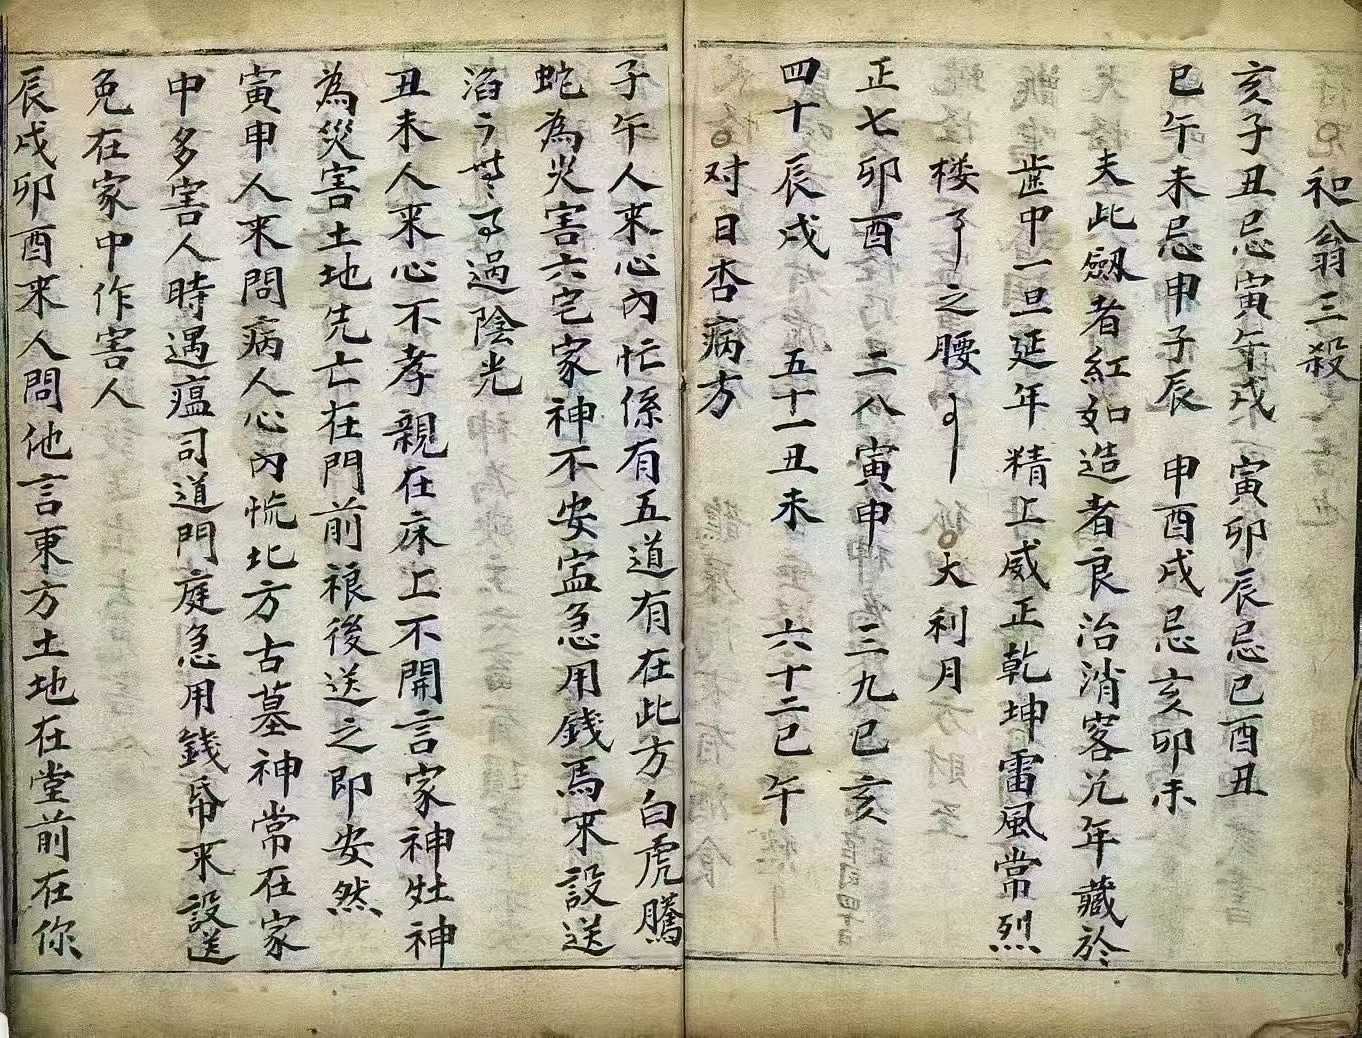 和翁三殺
亥子丑忌寅午戌 寅卯辰忌巳酉丑
巳午未忌申子辰 申酉戌忌亥卯未
夫此劔者紅如造者良治消客允年藏於
歯中一旦延年精上威正乾坤雷風常烈
楼了之腰 大利月
正七卯酉 二八寅申 三九巳亥
四十辰戌 五十一丑未 六十二巳午
对日杏病方
子午人来心內忙係有五道有在此方白虎騰
蛇為災害六宅家神不安寍急用錢馬来設送
滔 過陰光
丑未人来心不孝親在床上不開言家神灶神
為災害土地先亡在門前裉後送之即安然
寅申人来問病人心內慌北方古墓神常在家
中多害人時遇瘟司道門庭急用錢帋来設送
免在家中作害人
辰戌卯酉来人問他言東方土地在堂前在你